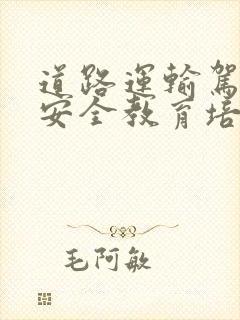 道路運輸駕
安全教育培
毛阿敏